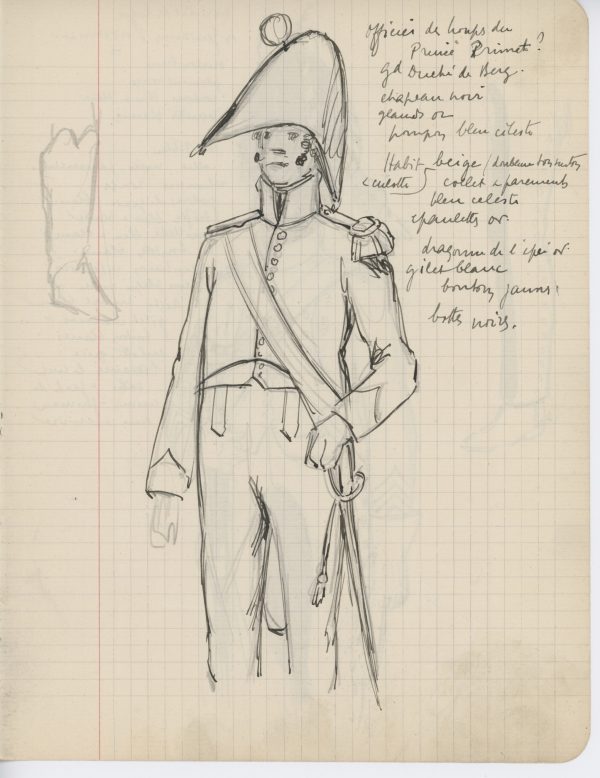 officier de troupes du
Prince Primat?
gd Duché de Berg.
chapeau noir
glands or
pompon bleu céleste
Habit beige (doublure
culotte collet & parements
bleu céleste
epaulettes or
dragonne de l'épée or
gilet blanc
boutons jaunes
bottes noires.